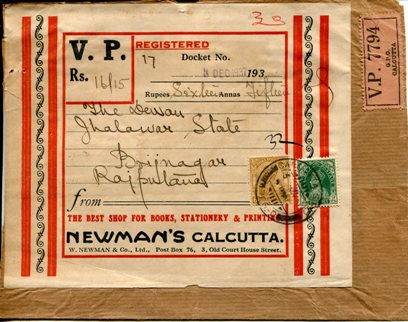 38
V. P.
REGISTERED
17
Docket No.
Rs. 16/15
3 DEC 1937 193
Rupees Sixteen Annas Fifteen
The Dewan
Jhalawar State
32
Brijnagar
Rajputana
from
THE BEST SHOP FOR BOOKS, STATIONERY & PRINTING
NEWMAN'S CALCUTTA.
W. NEWMAN & Co., Ltd., Post Box 76, 3, Old Court House Street.
V.P. 7794
G.P.O.
CALCUTTA